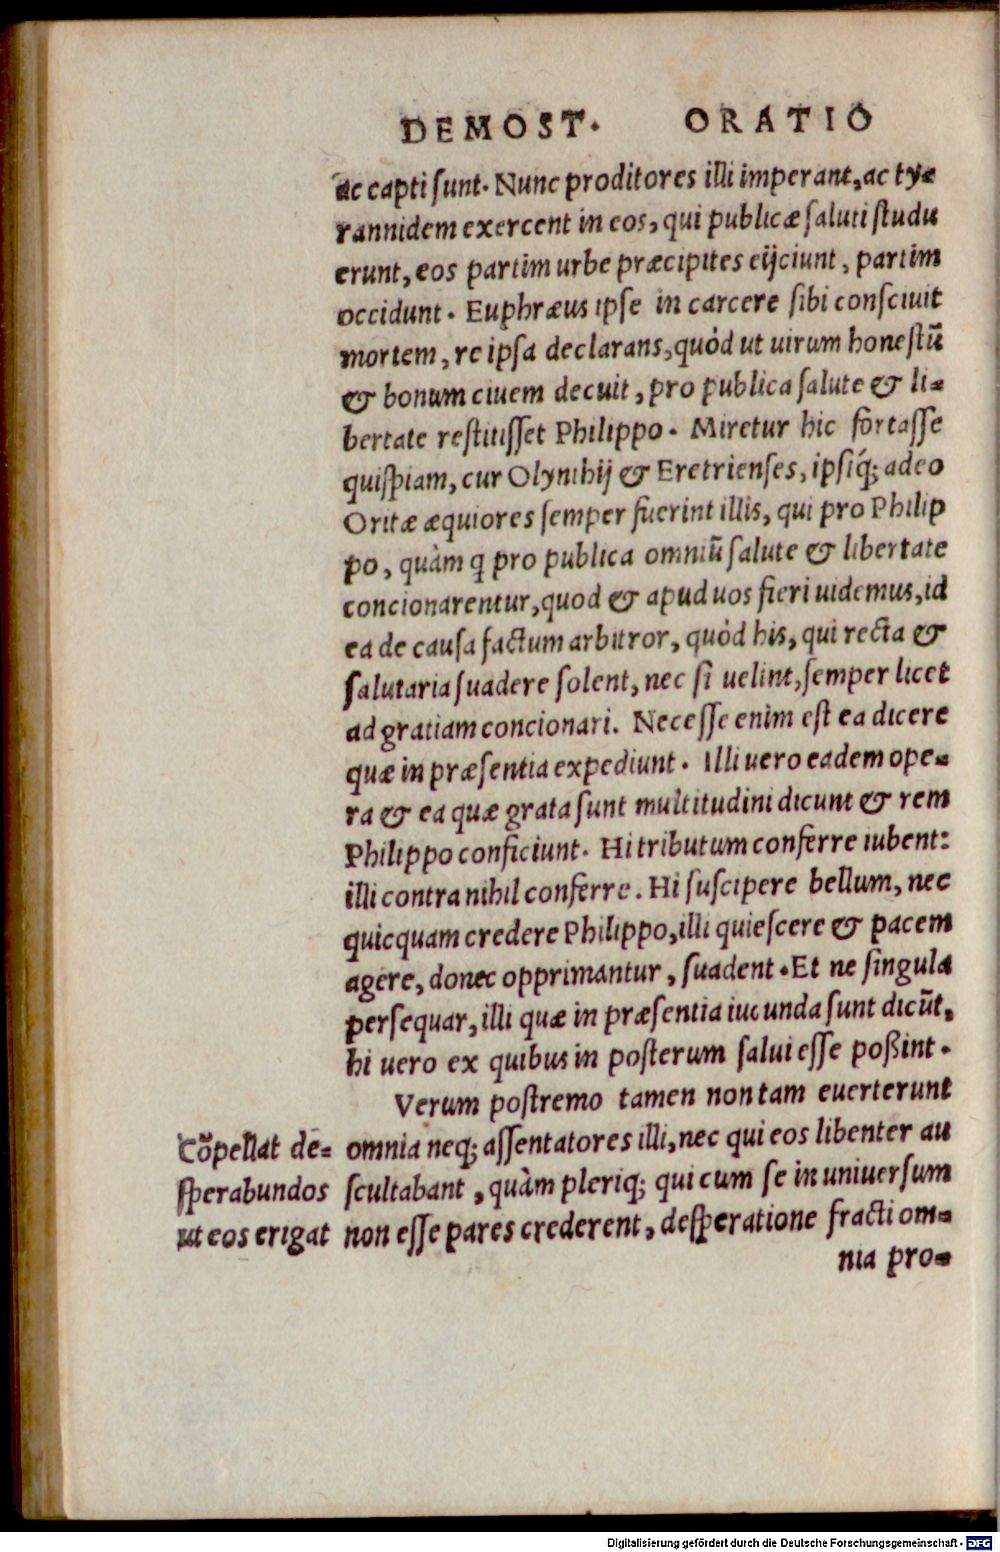 DEMOST. ORATIO
ac capti sunt. Nunc proditores illi imperant, ac ty-
rannidem exercent in eos, qui publicæ saluti studu
erunt, eos partim urbe præcipites eijciunt, partim
occidunt. Euphræus ipse in carcere sibi consciuit
mortem, re ipsa declarans, quòd ut uirum honestũ
& bonum ciuem decuit, pro publica salute & li-
bertate restitisset Philippo. Miretur hic fortasse
quispiam, cur Olynthij & Eretrienses, ipsiq́; adeo
Oritæ æquiores semper fuerint illis, qui pro Philip
po, quàm q pro publica omniũ salute & libertate
concionarentur, quod & apud uos fieri uidemus, id
ea de causa factum arbitror, quòd his, qui recta &
salutaria suadere solent, nec si uelint, semper licet
ad gratiam concionari. Necesse enim est ea dicere
quæ in præsentia expediunt. Illi uero eadem ope-
ra & ea quæ grata sunt multitudini dicunt & rem
Philippo conficiunt. Hi tributum conferre iubent:
illi contra nihil conferre. Hi suscipere bellum, nec
quicquam credere Philippo, illi quiescere & pacem
agere, donec opprimantur, suadent. Et ne singula
persequar, illi quæ in præsentia iucunda sunt dicũt,
hi uero ex quibus in posterum salui esse poßint.
Verum postremo tamen non tam euerterunt
omnia neq; assentatores illi, nec qui eos libenter au
scultabant, quàm pleriq; qui cum se in uniuersum
non esse pares crederent, desperatione fracti om-
nia pro-
Cõpellat de-
sperabundos
ut eos erigat
Digitalisierung gefördert durch die Deutsche Forschungsgemeinschaft - DFG